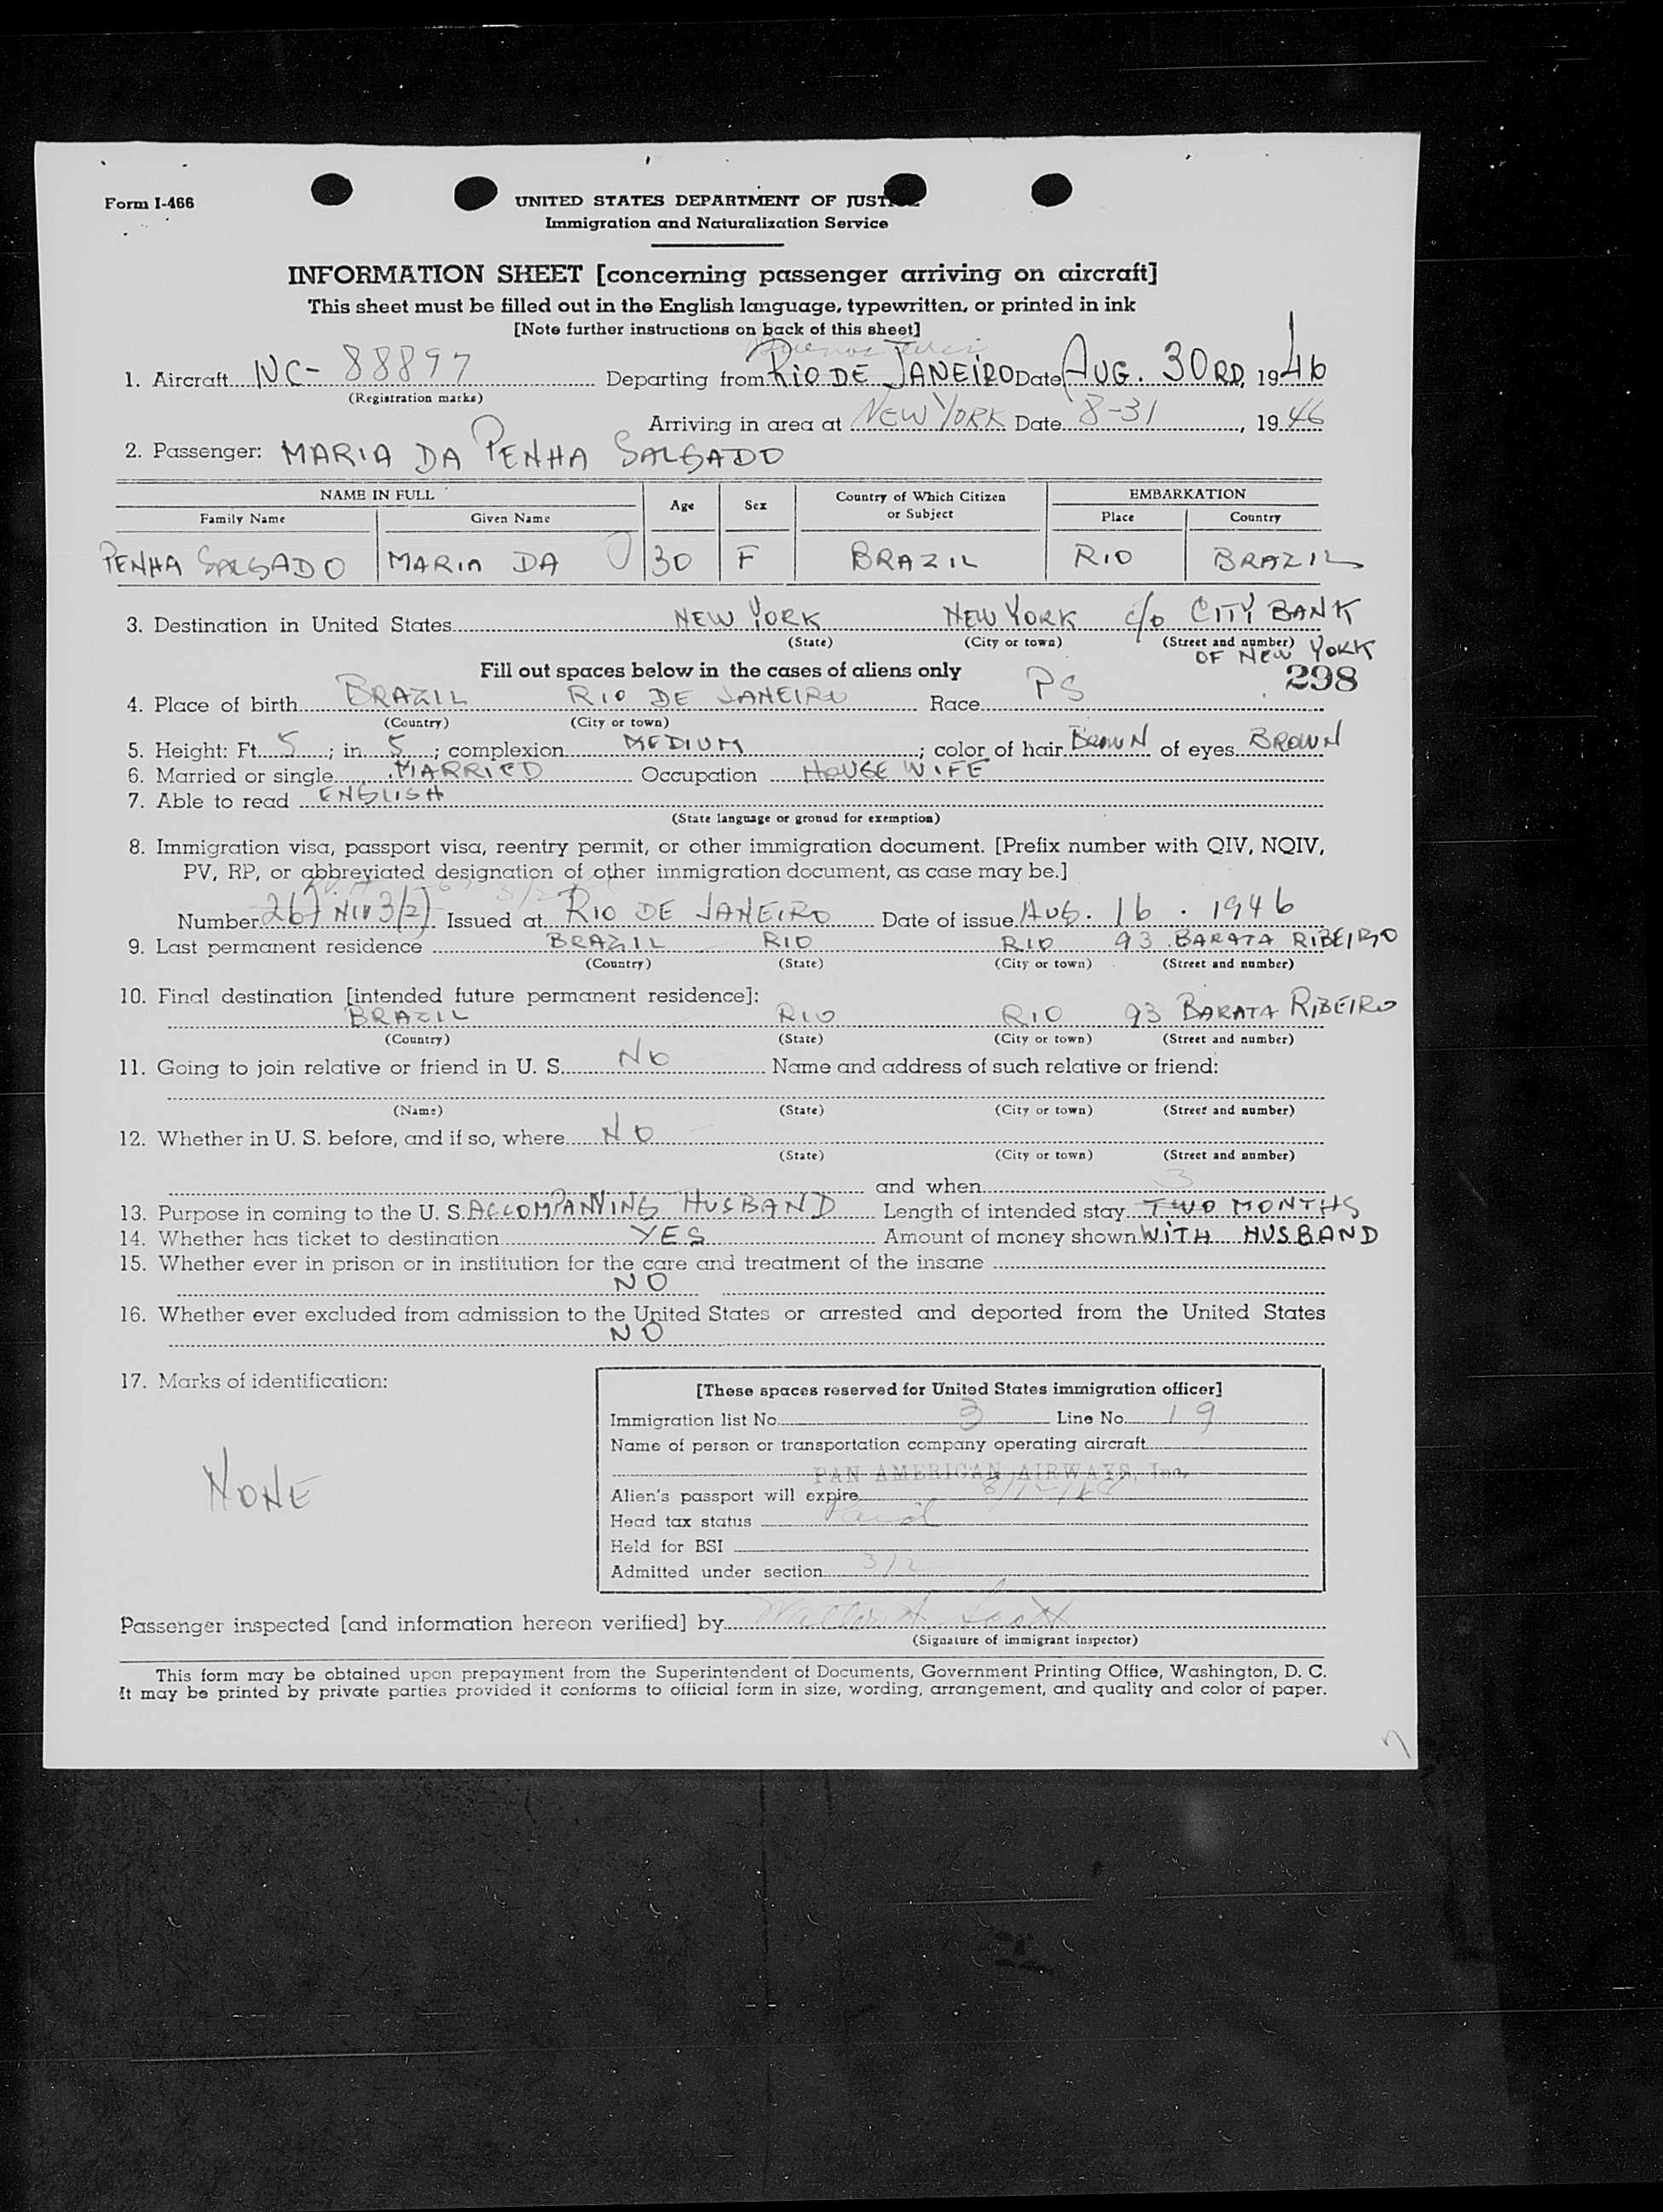 Form I-466
UNITED STATES DEPARTMENT OF JUSTICE
Immigration and Naturalization Service
INFORMATION SHEET [concerning passenger arriving on aircraft]
This sheet must be filled out in the English language, typewritten, or printed in ink
[Note further instructions on back of this sheet]
Buenos Aires
1. Aircraft NC-88897 Departing from RIO DE JANEIRO Date AUG. 30RD, 1946
(Registration marks)
Arriving in area at NEW YORK Date 8-31, 1946
2. Passenger: MARIA DA PENHA SALGADO
NAME IN FULL Age Sex Country of Which Citizen or Subject EMBARKATION
Family Name Given Name Place Country
PENHA SALGADO MARIA DA 30 F BRAZIL RIO BRAZIL
3. Destination in United States NEW YORK NEW YORK c/o CITY BANK
(State) (City or town) (Street and number)
OF NEW YORK
Fill out spaces below in the cases of aliens only 298
4. Place of birth BRAZIL RIO DE JANEIRO Race PS
(Country) (City or town)
5. Height: Ft. 5; in. 5; complexion MEDIUM; color of hair BROWN of eyes BROWN
6. Married or single MARRIED Occupation HOUSE WIFE
7. Able to read ENGLISH
(State language or ground for exemption)
8. Immigration visa, passport visa, reentry permit, or other immigration document. [Prefix number with QIV, NQIV,
PV, RP, or abbreviated designation of other immigration document, as case may be.]
Number 267 NIV 3(2) Issued at RIO DE JANEIRO Date of issue AUG. 16. 1946
9. Last permanent residence BRAZIL RIO RIO 93 BARATA RIBEIRO
(Country) (State) (City or town) (Street and number)
10. Final destination [intended future permanent residence]:
BRAZIL RIO RIO 93 BARATA RIBEIRO
(Country) (State) (City or town) (Street and number)
11. Going to join relative or friend in U. S. NO Name and address of such relative or friend:
(Name) (State) (City or town) (Street and number)
12. Whether in U. S. before, and if so, where NO
(State) (City or town) (Street and number)
and when 3
13. Purpose in coming to the U. S. ACCOMPANYING HUSBAND Length of intended stay TWO MONTHS
14. Whether has ticket to destination YES Amount of money shown WITH HUSBAND
15. Whether ever in prison or in institution for the care and treatment of the insane
NO
16. Whether ever excluded from admission to the United States or arrested and deported from the United States
NO
17. Marks of identification:
NONE
[These spaces reserved for United States immigration officer]
Immigration list No. 3 Line No. 19
Name of person or transportation company operating aircraft
PAN AMERICAN AIRWAYS, Inc.
Alien's passport will expire
Head tax status Paid
Held for BSI
Admitted under section 3/2
Passenger inspected [and information hereon verified] by Scott
(Signature of immigrant inspector)
This form may be obtained upon prepayment from the Superintendent of Documents, Government Printing Office, Washington, D. C.
It may be printed by private parties provided it conforms to official form in size, wording, arrangement, and quality and color of paper.